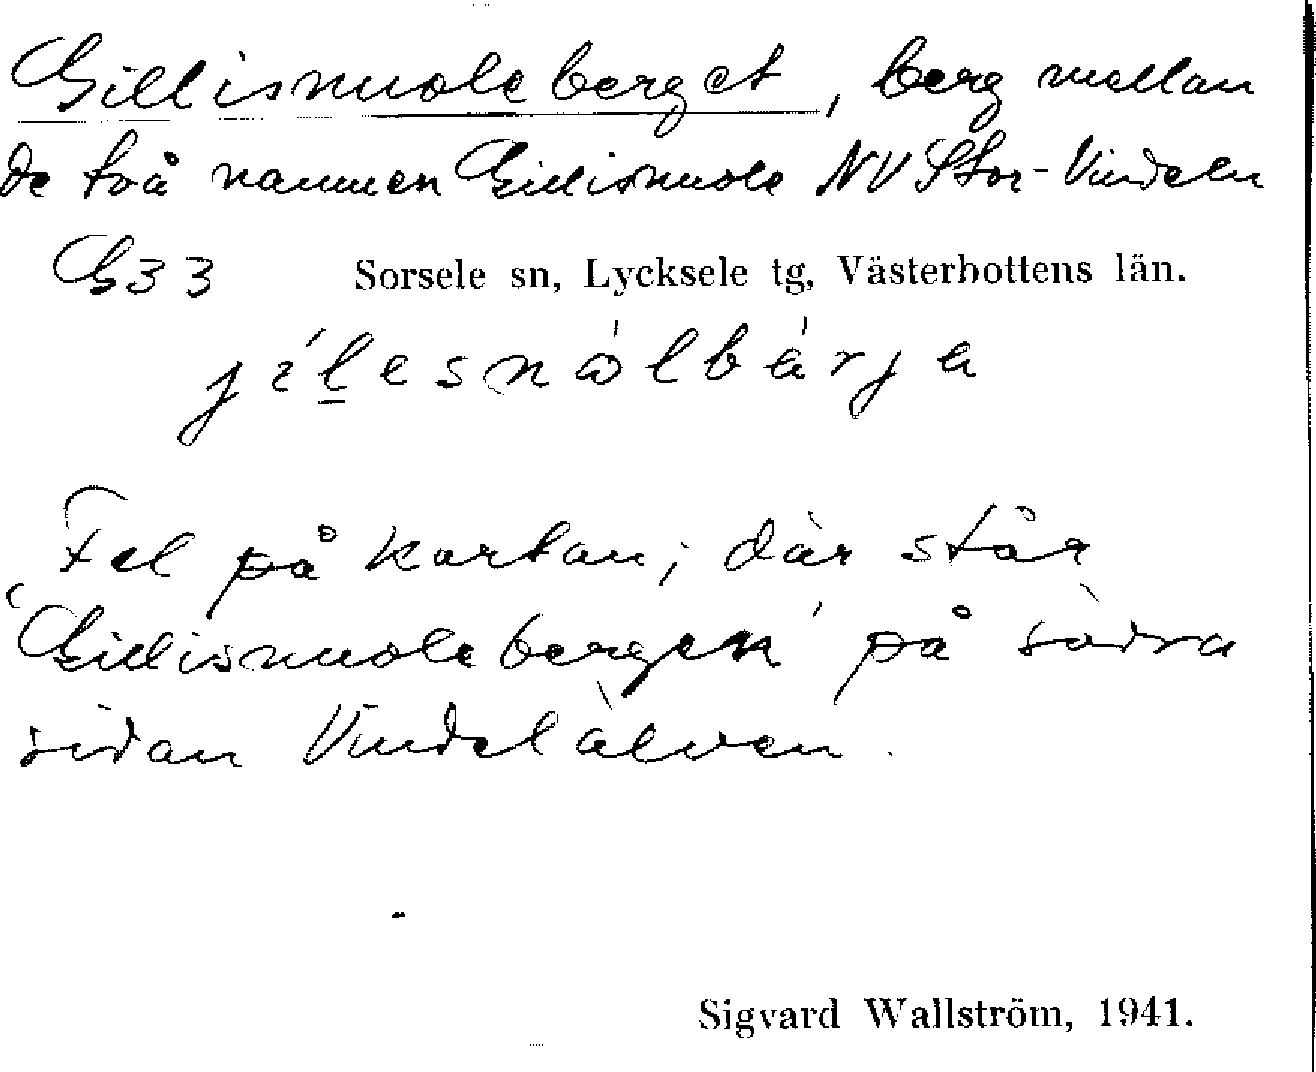 Gillisnuoleberget, berg mellan
de två namnen Gillisnuole NV Stor-Vindeln
G33 Sorsele sn, Lycksele tg, Västerbottens län.
Fel på kartan; där står
'Gillisnuolebergen' på södra
sidan Vindelälven.
Sigvard Wallström, 1941.